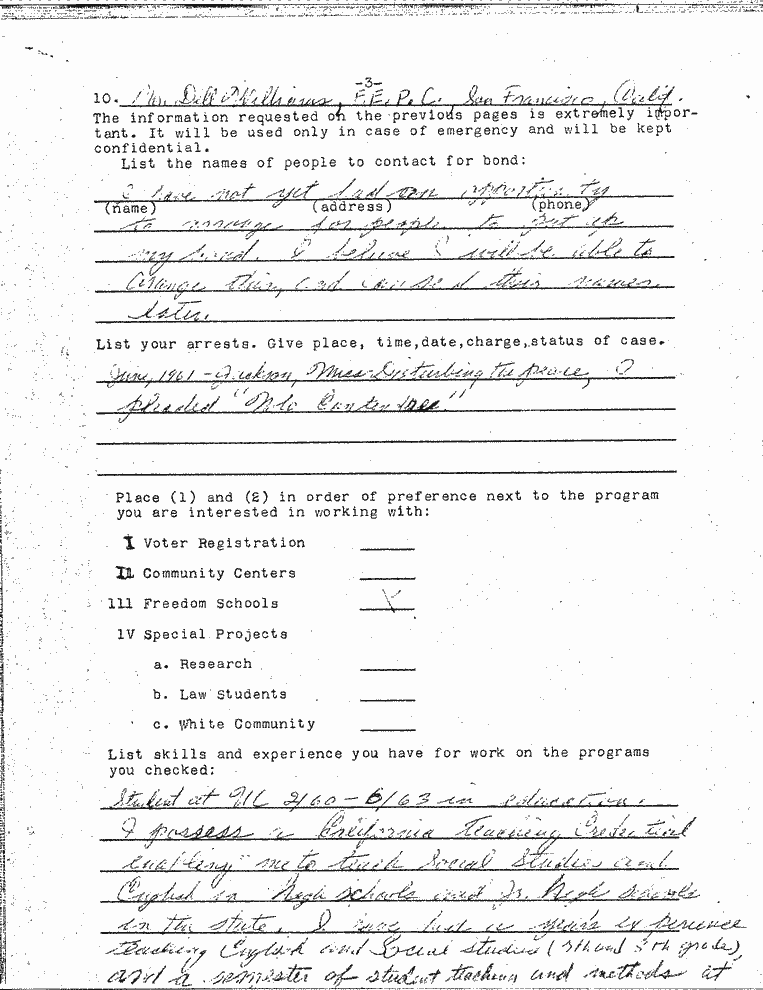 -3-
10. Mr. Dell Williams, F.E.P.C., San Francisco, Calif.
The information requested on the previous pages is extremely impor-
tant. It will be used only in case of emergency and will be kept
confidential.
List the names of people to contact for bond:
I have not yet had an opportunity
(name) (address) (phone)
to arrange for people to put up
my bond. I believe I will be able to
arrange this, and can send their names
later.
List your arrests. Give place, time,date,charge,status of case.
June, 1961 - Jackson, Miss Disturbing the peace, I
pleaded "Nolo
Place (1) and (2) in order of preference next to the program
you are interested in working with:
I Voter Registration
II Community Centers
111 Freedom Schools X
1V Special Projects
a. Research
b. Law Students
c. White Community
List skills and experience you have for work on the programs
you checked:
Student at 2/60 - 6/63 in education.
I possess a California Teaching Credential
enabling me to teach Social Studies and
English in high schools and Jr. High schools
in the state. I have had a year's experience
teaching English and Social studies (7th and 8th grade)
and a semester of student teaching and methods at